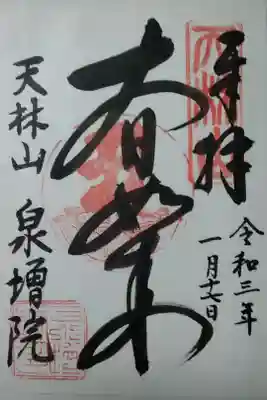 奉拝
令和三年
一月十七日
大日如来
天林山
泉増院